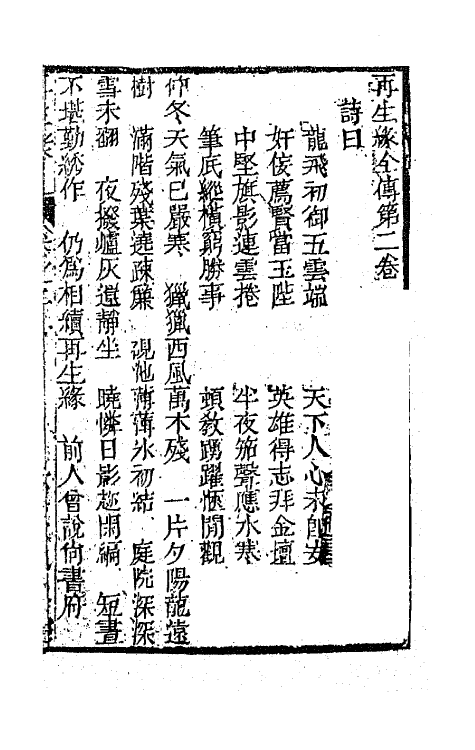 再生緣全傳第二卷
詩曰
龍飛初御五雲端　天下人心求
奸佞薦賢當玉陛　英雄得志拜金壇
中堅旗影連雲捲　半夜笳聲應水寒
筆底縱橫窮勝事　頓教踴躍愜閒觀
仲冬天氣已嚴寒　獵獵西風萬木殘　一片夕陽龍遠
樹　滿階殘葉遶疎簾　硯池薄薄氷初結　庭院深深
雪未翻　夜撥爐灰還靜坐　曉憐日影趂閑編　短晝
不堪勤綉作　仍爲相續再生緣　前人曾說尚書府